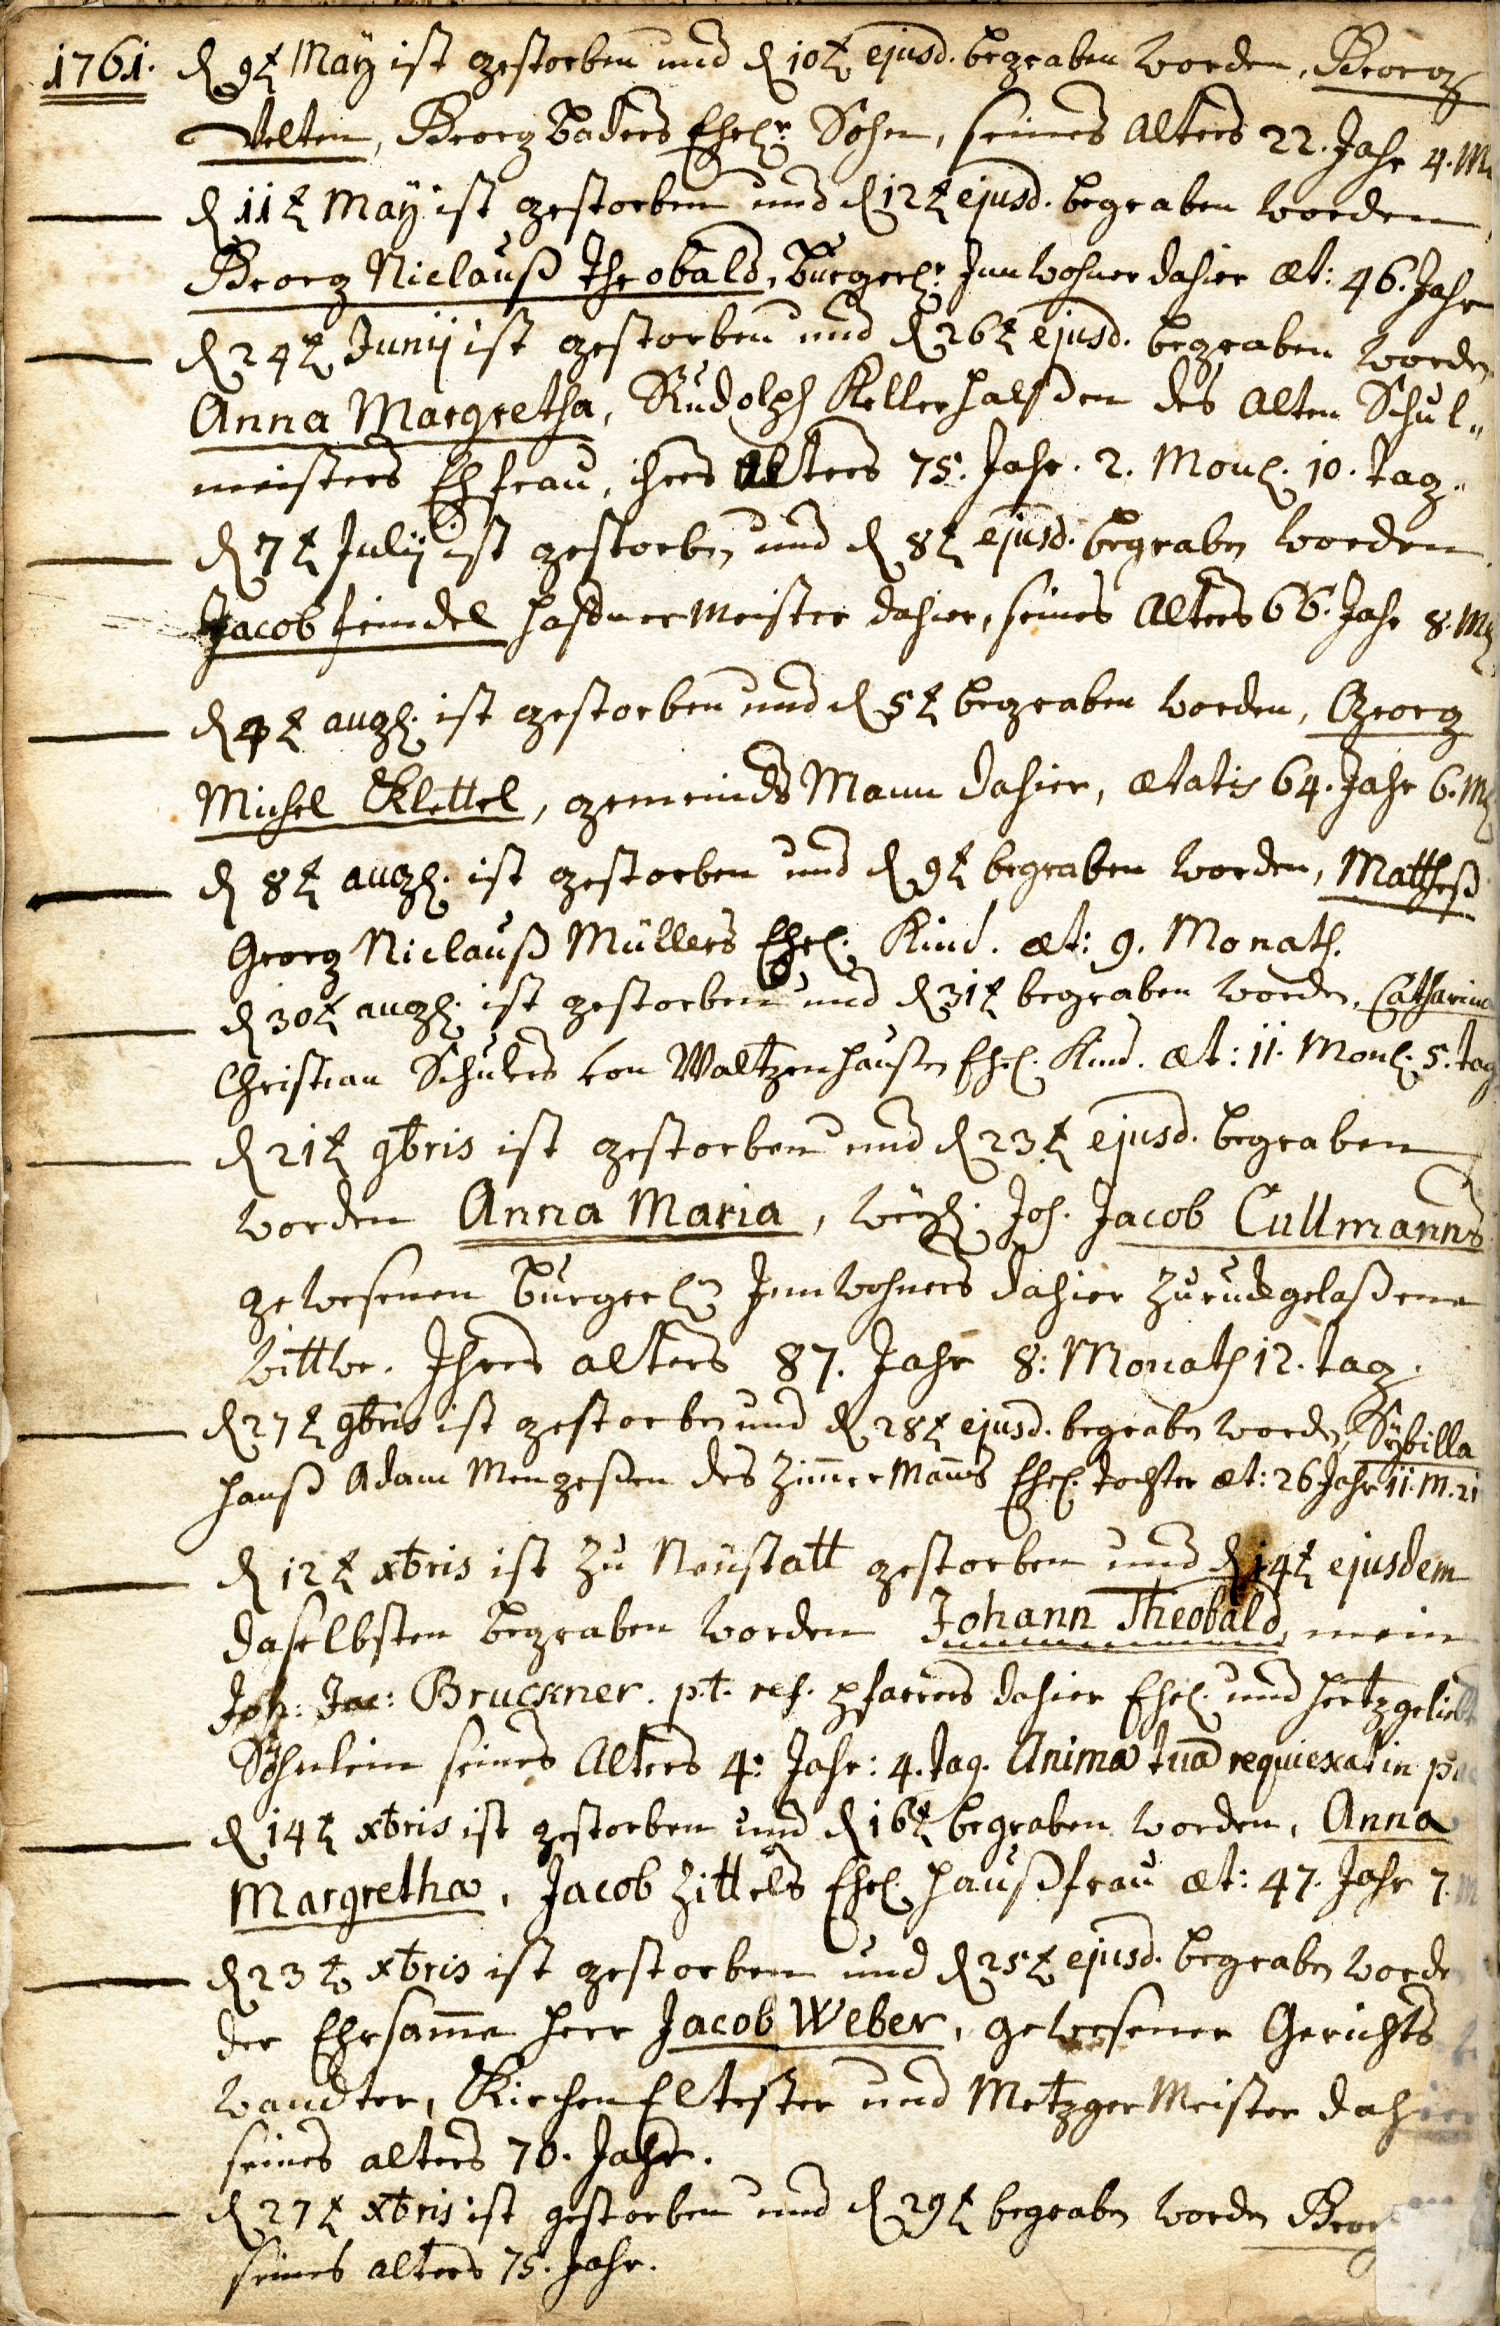 1761. d 9t May ist gestorben und d 10t ejusd. begraben worden, Georg
Velten, Georg Baders Ehel: Sohn, seines Alters 22. Jahr 4. M
d 11t May ist gestorben und d 12t ejusd. begraben worden
Georg Niclauß Theobald, burgerl: Innwohner dahier æt: 46. Jahr
d 24t Junij ist gestorben und d 26t ejusd. begraben worden
Anna Margretha, Rudolph Kellerhalsden des Alten Schul-
meisters Ehfrau, ihres Alters 75. Jahr. 2. Mon. 10. tag.
d 7t Julij ist gestorben und d 8t ejusd. begraben worden
Jacob Feindel Haffner Meister dahier, seines Alters 66. Jahr 8. M
d 4t aug. ist gestorben und d 5t begraben worden, Georg
Michel Klettel, gemeinds Mann dahier, ætatis 64. Jahr 6. M
d 8t aug. ist gestorben und d 9t begraben worden, Matthes
Georg Niclauß Müllers Ehel. Kind. æt: 9. Monath.
d 30t aug. ist gestorben und d 31t begraben worden, Catharina
Christian Schulers von Waltzenhausen Ehel. Kind. æt: 11. Mon. 5. tag
d 21t 9bris ist gestorben und d 23t ejusd. begraben
worden Anna Maria, weyl. Joh. Jacob Cullmanns
gewesenen burgerl. Innwohners dahier zurückgelaßene
Wittwe. Ihres alters 87. Jahr 8: Monath 12. tag.
d 27t 9bris ist gestorben und d 28t ejusd. begraben worden, Sybilla
Hanß Adam Mengeßen des Zim̄er Man̄s Ehel. Tochter æt: 26 Jahr 11. M. 21
d 12t xbris ist zu Neustatt gestorben und d 14t ejusdem
daselbsten begraben worden Johann Theobald, mein
Joh: Jac: Bruckner. p.t. ref. pfarrers dahier Ehel. und hertzgeliebt
Söhnlein seines Alters 4: Jahr: 4. Tag. Anima tua requiexat in pac
d 14t xbris ist gestorben und d 16t begraben worden, Anna
Margretha, Jacob Zittels Ehel. Haußfrau æt: 47. Jahr 7. M
d 23t xbris ist gestorben und d 25t ejusd. begraben worde
der Ehrsam̄e Herr Jacob Weber, gewesener Gerichts
wandter, Kirchen Eltester und Metzger Meister dahier
seines alters 70. Jahr.
d 27t xbris ist gestorben und d 29t begraben worden Geor
seines alters 75. Jahr.